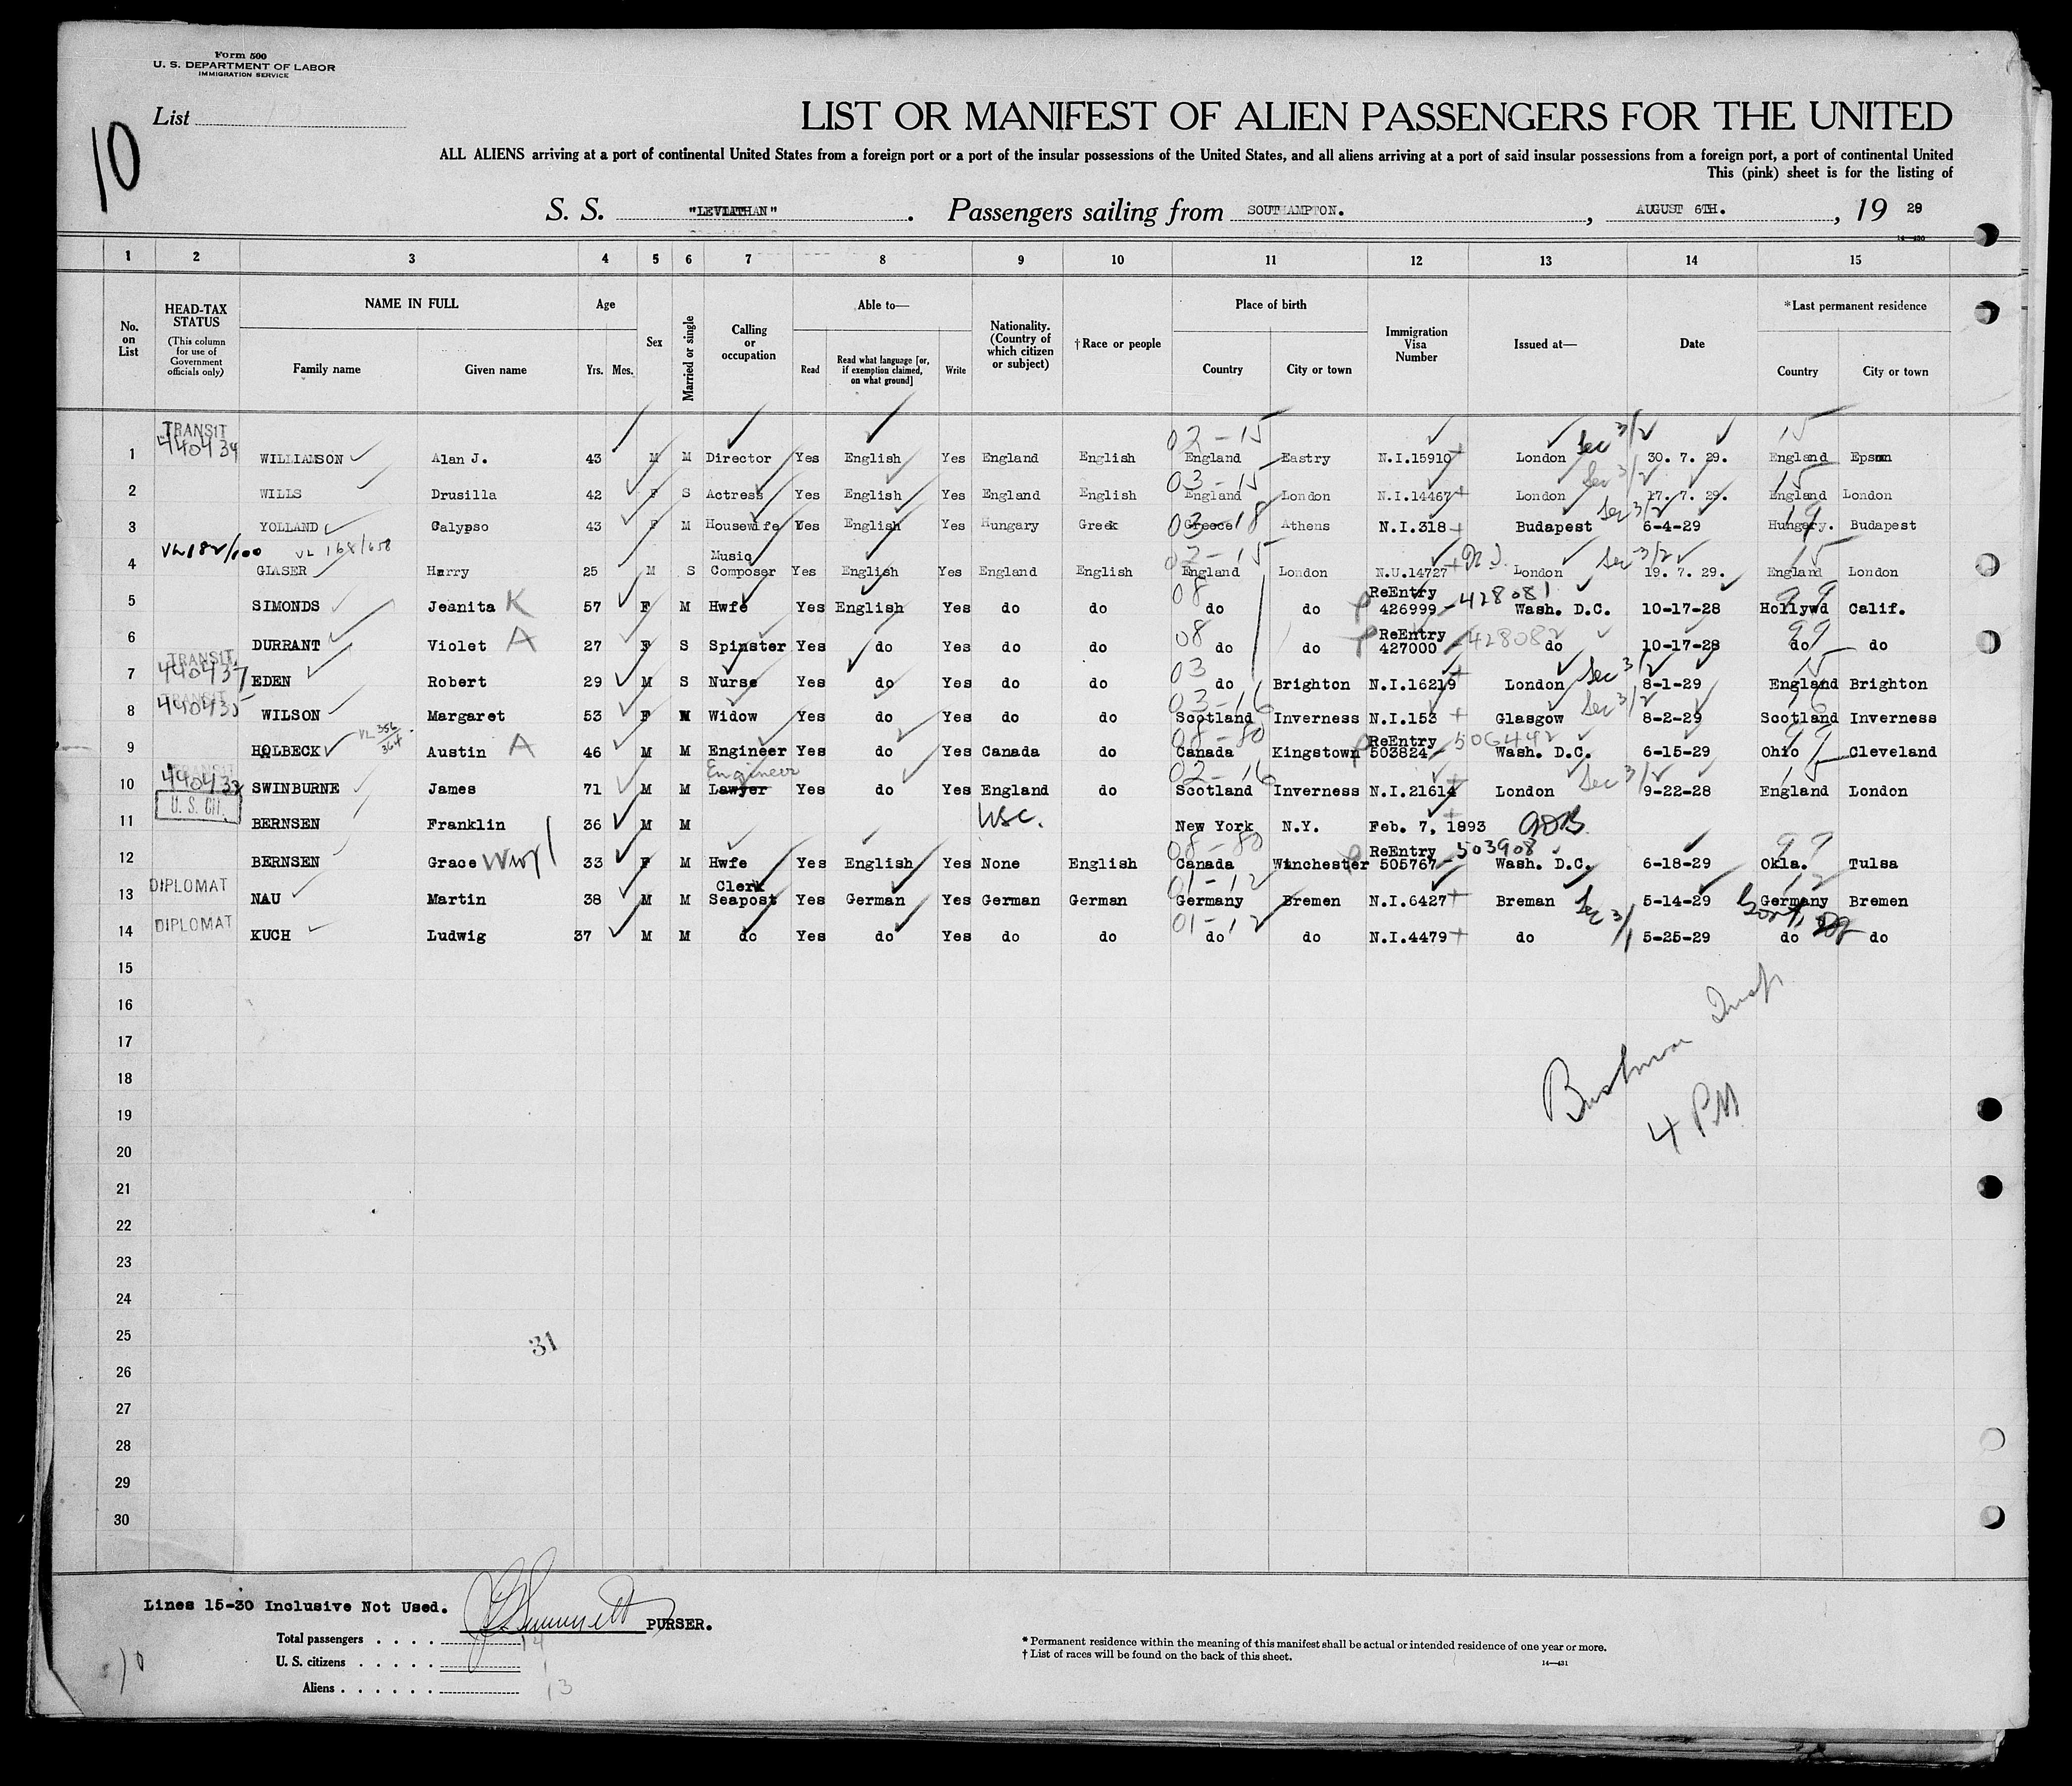 Form 500
U. S. DEPARTMENT OF LABOR
IMMIGRATION SERVICE
List
10
LIST OR MANIFEST OF ALIEN PASSENGERS FOR THE UNITED
ALL ALIENS arriving at a port of continental United States from a foreign port or a port of the insular possessions of the United States, and all aliens arriving at a port of said insular possessions from a foreign port, a port of continental United
This (pink) sheet is for the listing of
S. S. "LEVIATHAN". Passengers sailing from SOUTHAMPTON., AUGUST 6TH., 19 29
14—430
1 2 3 4 5 6 7 8 9 10 11 12 13 14 15
No. on List
HEAD-TAX STATUS
(This column for use of Government officials only)
NAME IN FULL
Family name Given name
Age
Yrs. Mos.
Sex
Married or single
Calling or occupation
Able to—
Read
Read what language [or, if exemption claimed, on what ground]
Write
Nationality. (Country of which citizen or subject)
†Race or people
Place of birth
Country City or town
Immigration Visa Number
Issued at—
Date
*Last permanent residence
Country City or town
TRANSIT 02-15 Sec 3/2 15
1 440434 WILLIAMSON Alan J. 43 M M Director Yes English Yes England English England Eastry N.I.15910 London 30. 7. 29. England Epsom
03-15 Sec 3/2 15
2 WILLS Drusilla 42 F S Actress Yes English Yes England English England London N.I.14467 London 17. 7. 29. England London
03 18 Sec 3/2 19
3 YOLLAND Calypso 43 F M Housewife Yes English Yes Hungary Greek Greece Athens N.I.318 Budapest 6-4-29 Hungary. Budapest
VL 182/600 VL 168/658 Music 02-15 Sec 3/2 15
4 GLASER Harry 25 M S Composer Yes English Yes England English England London N.U.14727 London 19. 7. 29. England London
08 ReEntry 428081 99
5 SIMONDS Jeanita K 57 F M Hwfe Yes English Yes do do do do 426999 Wash. D.C. 10-17-28 Hollywd Calif.
08 ReEntry 428082 99
6 DURRANT Violet A 27 F S Spinster Yes do Yes do do do do 427000 do 10-17-28 do do
TRANSIT 03 Sec 3/2 15
7 440437 EDEN Robert 29 M S Nurse Yes do Yes do do do Brighton N.I.16219 London 8-1-29 England Brighton
TRANSIT 03-16 Sec 3/2 16
8 440435 WILSON Margaret 53 F W Widow Yes do Yes do do Scotland Inverness N.I.153 Glasgow 8-2-29 Scotland Inverness
VL 356/364 08-80 ReEntry 506442 99
9 HOLBECK Austin A 46 M M Engineer Yes do Yes Canada do Canada Kingstown 503824 Wash. D.C. 6-15-29 Ohio Cleveland
TRANSIT Engineer 02-16 Sec 3/2 15
10 440432 SWINBURNE James 71 M M Lawyer Yes do Yes England do Scotland Inverness N.I.21614 London 9-22-28 England London
U. S. Cit.
11 BERNSEN Franklin 36 M M USC. New York N.Y. Feb. 7, 1893
08-80 ReEntry 503908 99
12 BERNSEN Grace 33 F M Hwfe Yes English Yes None English Canada Winchester 505767 Wash. D.C. 6-18-29 Okla. Tulsa
DIPLOMAT Clerk 01-12 12
13 NAU Martin 38 M M Seapost Yes German Yes German German Germany Bremen N.I.6427 Breman 5-14-29 Germany Bremen
DIPLOMAT 01-12 Sec 3/1
14 KUCH Ludwig 37 M M do Yes do Yes do do do do N.I.4479 do 5-25-29 do do
15
16
17
18
19
20
21
22
23
24
25
26
27
28
29
30
Insp
4 PM
31
Lines 15-30 Inclusive Not Used.
PURSER.
Total passengers . . . . 14
U. S. citizens . . . . . 1
Aliens . . . . . . 13
10
* Permanent residence within the meaning of this manifest shall be actual or intended residence of one year or more.
† List of races will be found on the back of this sheet.
14—431